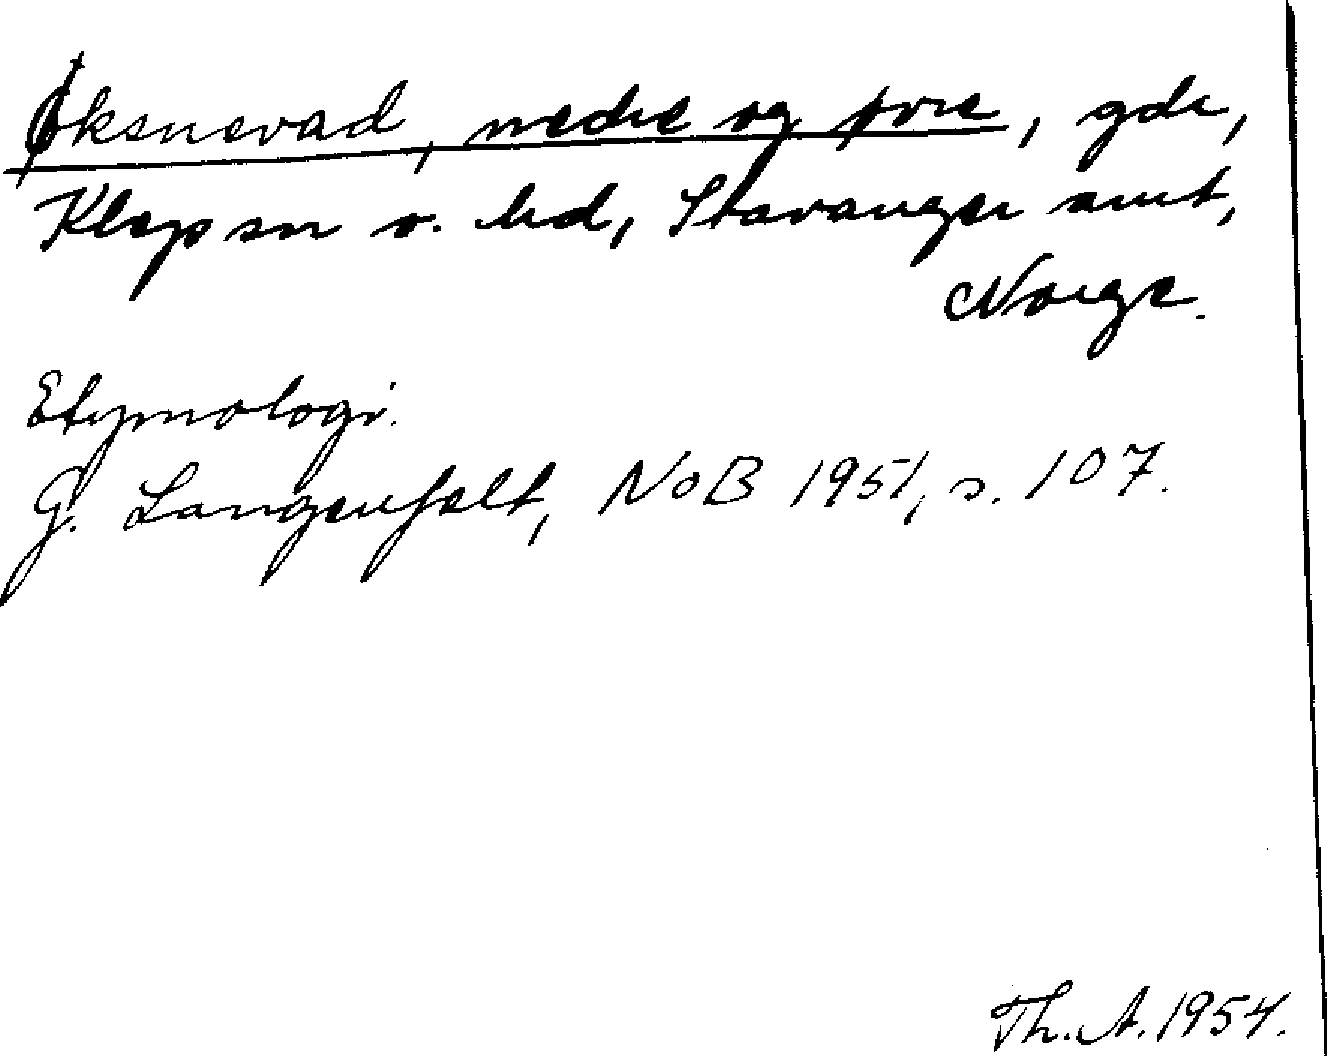 Øksnevad, nedre og øvre, gde,
Klepp sn o. hd, Stavanger amt,
Norge.
Etymologi.
G. Langenfelt, NoB 1951, s. 107.
Th. A. 1954.